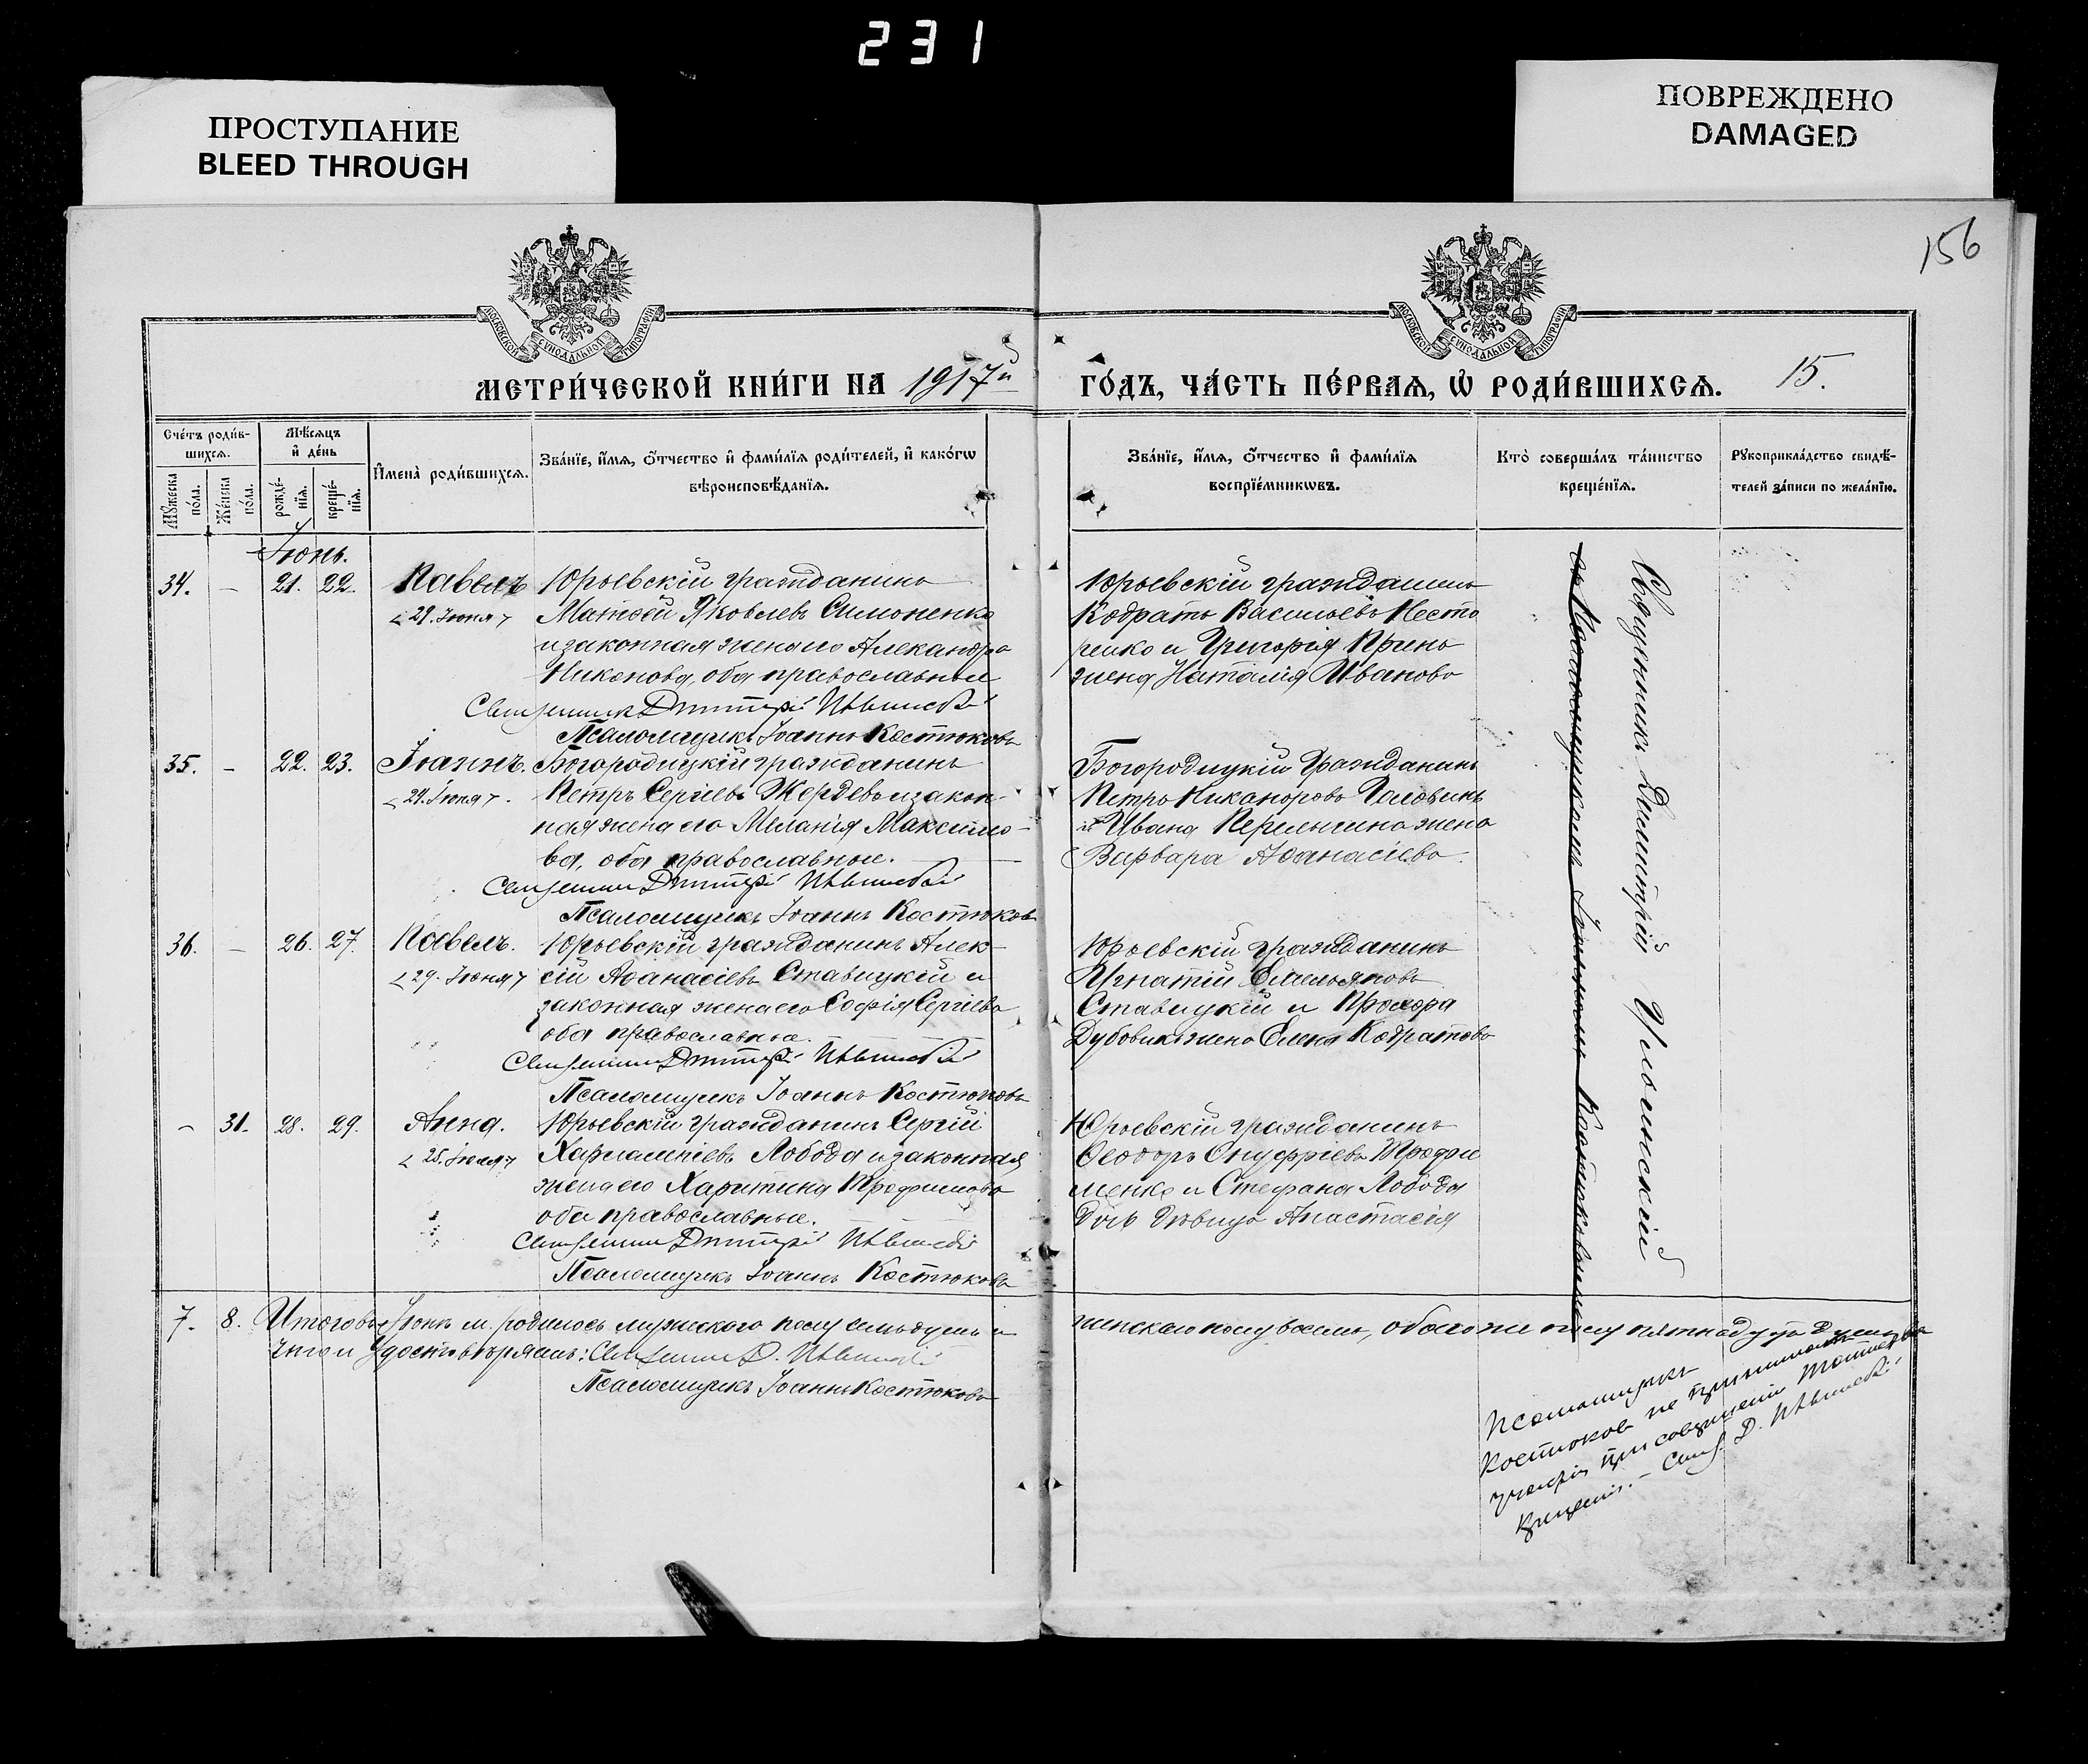 231
ПРОСТУПАНИЕ
BLEED THROUGH
ПОВРЕЖДЕНО
DAMAGED
156
МОСКОВСКОЙ СѴНОДАЛЬНОЙ ТИПОГРАФІИ
МОСКОВСКОЙ СѴНОДАЛЬНОЙ ТИПОГРАФІИ
МЕТРИ́ЧЕСКОЙ КНИ́ГИ НА 1917й
ГО́ДЪ, ЧА́СТЬ ПЕ́РВАѦ, Ѽ РОДИ́ВШИХСѦ. 15.
Сче́тъ роди́в-
шихсѧ.
Мꙋ́жеска по́ла.
Же́нска по́ла.
Мѣ́сѧцъ
и҆ де́нь
рожде́-
нїѧ.
креще́-
нїѧ.
И҆мена̀ роди́вшихсѧ.
Зва́нїе, и҆́мѧ, ѻ҆́тчество и҆ фами́лїѧ роди́телей, и҆ како́гѡ
вѣроисповѣ́данїѧ.
Зва́нїе, и҆́мѧ, ѻ҆́тчество и҆ фами́лїѧ
воспрїе́мникѡвъ.
Кто̀ соверша́лъ та́инство
креще́нїѧ.
Рꙋкоприкла́дство свидѣ́-
телей за́писи по жела́нїю.
Іюнь.
34. – 21. 22. Павелъ
29. Іюня
Юрьевскій гражданинъ
Матѳей Яковлевъ Симоненко
и законная жена его Александра
Никонова, оба православные
Священникъ Дмитрій
Псаломщикъ Іоаннъ Костюковъ
Юрьевскій гражданинъ
Кодратъ Васильевъ Несте
ренко и Григорія Принь
жена Наталія Иванова
35. – 22. 23. Іоаннъ.
24. Іюня
Богородицкій гражданинъ
Петръ Сергіевъ Жердевъ и закон-
ная жена его Меланія Максимо-
ва, оба православные.
Священникъ Дмитрій
Псаломщикъ Іоаннъ Костюковъ
Богородицкій гражданинъ
Петръ Никаноровъ Головинъ
и Ивана жена
Варвара Аѳанасіева.
36. – 26. 27. Павелъ.
29. Іюня
Юрьевскій гражданинъ Алек-
сій Аѳанасіевъ Ставицкій и
законная жена его Софія Сергіева
оба православные.
Священникъ Дмитрій
Псаломщикъ Іоаннъ Костюковъ
Юрьевскій гражданинъ
Игнатій Емельяновъ
Ставицкій и Прохора
Дубовикъ жена Елена Кодратова
– 31. 28. 29. Анна.
25. Іюля
Юрьевскій гражданинъ Сергій
Харлампіевъ Лобода и законная
жена его Харитина Трофимова
оба православные.
Священникъ Дмитрій
Псаломщикъ Іоаннъ Костюковъ
Юрьевскій гражданинъ
Ѳеодоръ Онуфріевъ Трофи
менко и Стефана Лобода
дочь девица Анастасія
Священникъ Димитрій
съ Псаломщикомъ Іоанномъ Костюковымъ
7. 8. Итого въ Іюнѣ м. родилось мужского полу семь душъ и
женскаго полу восемь, обоего же полу пятнадцать душъ
Что и удостовѣряемъ: Священникъ Д.
Псаломщикъ Іоаннъ Костюковъ
Псаломщикъ
Костюковъ не принималъ
участія при совершеніи таинства
Крещенія. – Свящ. Д.